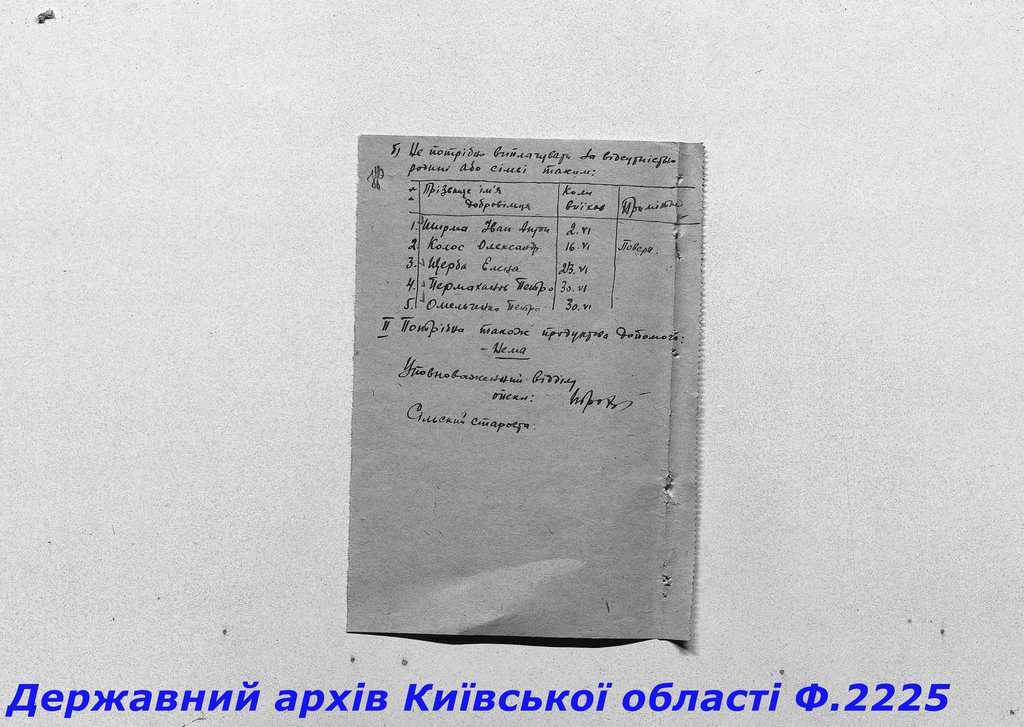 б) Не потрібно виплачувати за відсутністю
родині або сімві таким:
Прізвище ім'я Коли
добровільця виїхав Примітка
1. Ширма Іван 2.VI
2. Колос Олександр 16.VI Поверн.
3. Щерба Елена 23.VI
4. Петро 30.VI
5. Омельченко Петро 30.VI
II Потрібна також продуктова допомога:
- Нема
Уповноважений відділу
опіки:
Сільский староста:
Державний архів Київської області Ф.2225